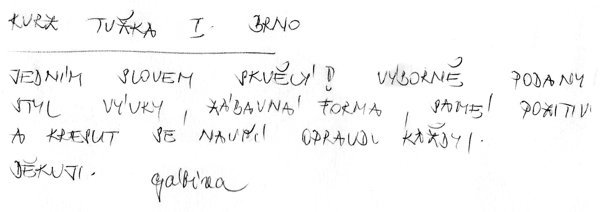 KURZ TUŽKA I. BRNO
JEDNÍM SLOVEM SKVĚLÝ! VÝBORNĚ PODANÝ
STYL VÝUKY, ZÁBAVNÁ FORMA, SAMÉ POZITIV
A KRESLIT SE NAUČÍ OPRAVDU KAŽDÝ.
DĚKUJI. Galina